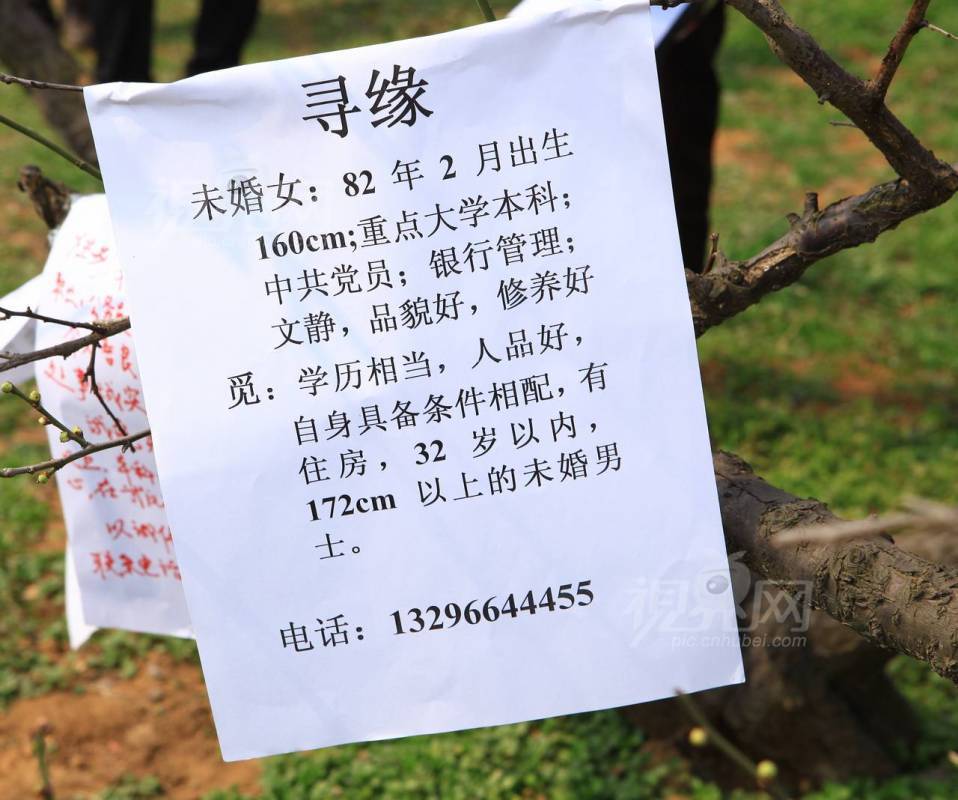 寻缘
未婚女：82 年 2 月出生
160cm;重点大学本科；
中共党员；银行管理；
文静，品貌好，修养好
觅：学历相当，人品好，
自身具备条件相配，有
住房，32 岁以内，
172cm 以上的未婚男
士。
电话：13296644455
視界网
pic.cnhubei.com